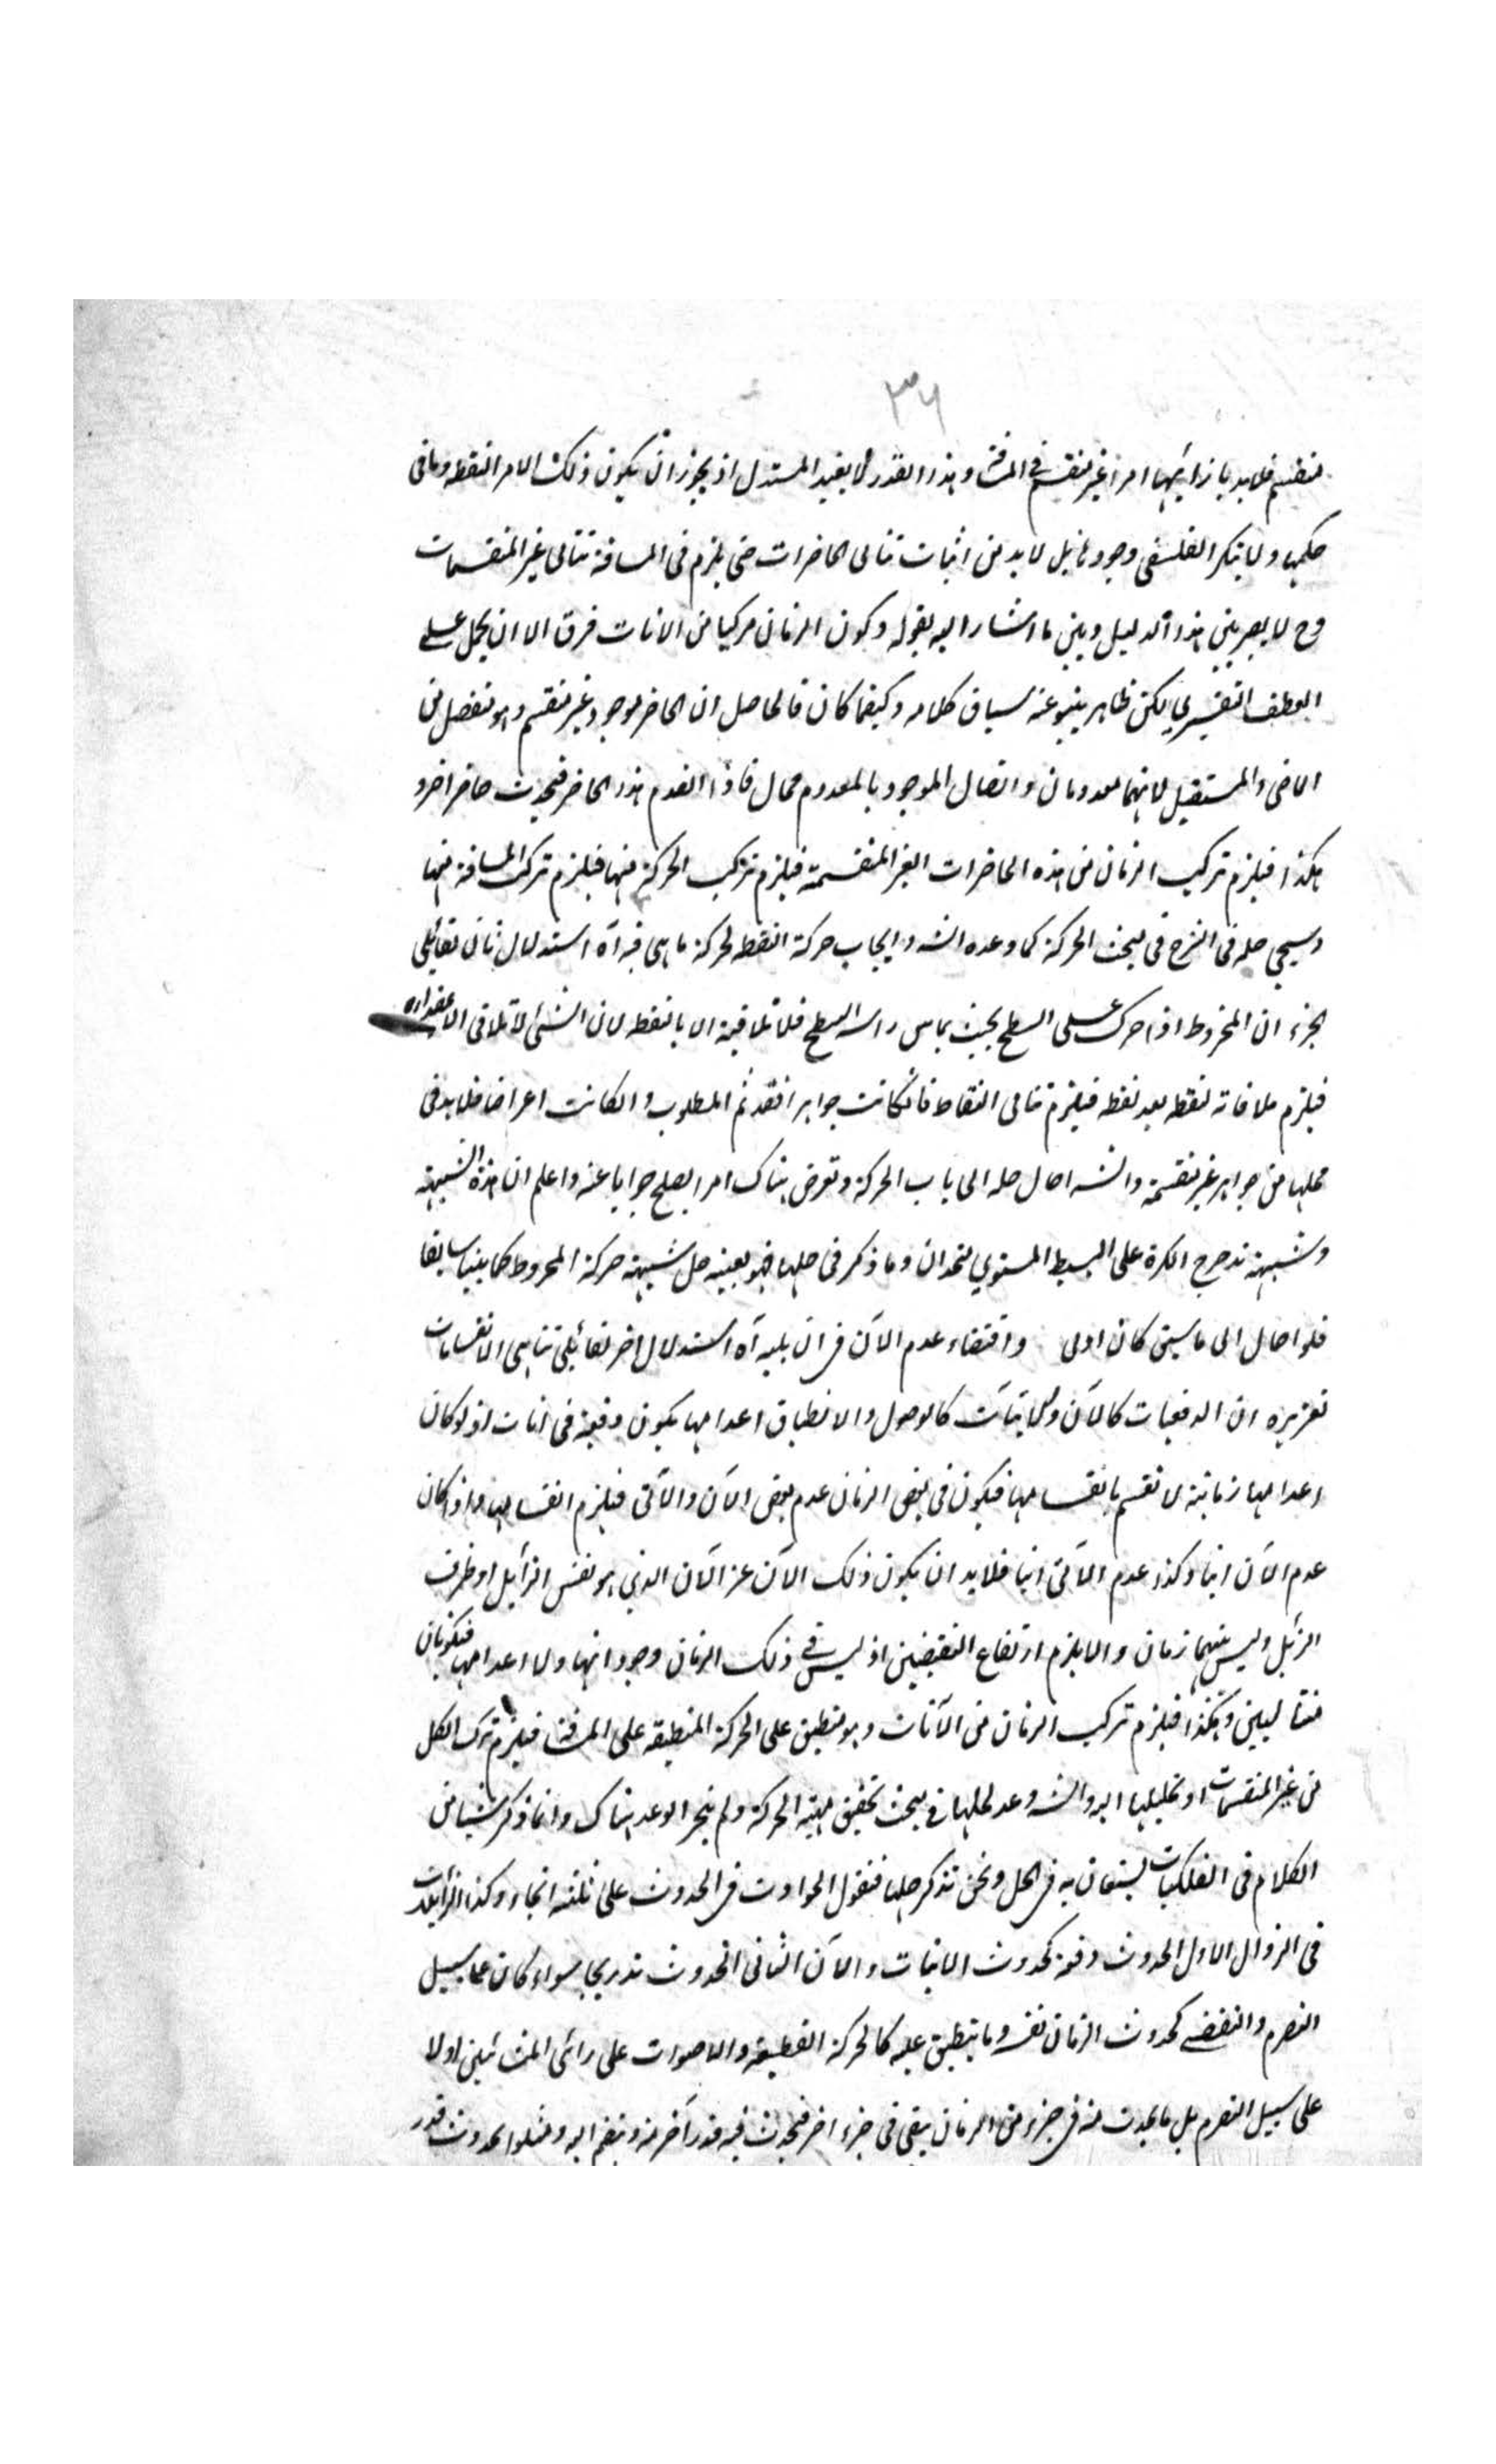 ٣٦
منقسم فلابد بازائها امرا غير منقسم في المسافة وهذا القدر لا يفيد المستدل اذ يجوز ان يكون ذلك الامر النقطه وما في
حكمها ولا ينكر الفلسفي وجودها بل لا بد من اثبات تتالى الحاضرات حتى يلزم في المسافة تتالي غير المنقسمات
وح لا يصير بين هذا الدليل وبين ما اشار اليه بقوله وكون الزمان مركبا من الانات فرق الا ان يحمل على
العطف التفسيري لكن ظاهر ينبو عنه سياق كلامه وكيفما كان فالحاصل ان الحاضر موجود غير منقسم وهو منفصل من
الماضي والمستقبل لانهما معدومان واتصال الموجود بالمعدوم محال فاذا انعدم هذا الحاضر فيحدث حاضر اخر و
هكذا فيلزم تركيب الزمان من هذه الحاضرات الغير المنقسمة فيلزم تركيب الحركة منها فيلزم تركب المسافة منها
وسيجي حله في الشرح في مبحث الحركة كما وعده الشه وايجاب حركة النقط لحركة ما هي فيه آه استدلال ثان لقائلي
الجزء ان المخروط اذا حرك على السطح بحيث يماس راسه السطح فلا تلاقيه الا بالنقطه لان الشئ لا تلاقي الا بمقداره
فيلزم ملاقاته لنقطه بعد نقطه فيلزم تتالى النقاط فان كانت جواهر افقد ثم المطلوب وان كانت اعراضا فلا بد في
محلها من جواهر غير منقسمة والشه احال حله الى باب الحركة وتعرض هناك امرا يصلح جوابا عنه واعلم ان هذه الشبهة
وشبهة تدحرج الكرة على البسيط المستوي متحدان وما ذكر في حلها فهو بعينه حل شبهة حركة المخروط كما بينا سابقا
فلو احال الى ما سبق كان اولى واقتضاء عدم الآن في ان يليه آه استدلال اخر لقائلي تناهي الانقسامات
تقريره ان الدفعيات كالآن والآنيات كالوصول والانطباق اعدامها يكون دفعية في انات اذ لو كان
اعدامها زمانية لانقسم بانقسامها فيكون في بعض الزمان عدم بعض الآن والآني فيلزم انقسامها واذا كان
عدم الآن انيا وكذا عدم الآني انيا فلا بد ان يكون ذلك الآن غير الآن الذي هو نفس الزائل او ظرف
الزائل وليس بينهما زمان والا يلزم ارتفاع النقيضين اذ ليس في ذلك الزمان وجوداتها ولا اعدامها فيكونان
متتاليين وهكذا فيلزم تركيب الزمان من الآنات وهو منطبق على الحركة المنطبقه على المسافة فيلزم تركب الكل
من غير المنقسمات او تحليلها اليه والشه وعد لحلها في مبحث تحقيق مهية الحركة ولم ينجز الوعد هناك وانما ذكر شيئا من
الكلام في الفلكيات يستعان به في الحل ونحن نذكر حلها فنقول الحوادث في الحدوث على ثلثة انحاء وكذا الزائلات
في الزوال الاول الحدوث دفعة كحدوث الانيات والآن الثاني الحدوث تدريجا سواء كان على سبيل
التصرم والتقضي كحدوث الزمان نفسه وما ينطبق عليه كالحركة القطعية والاصوات على رائى المشائين اولا
على سبيل التصرم بل ما يحدث منه في جزء من الزمان يبقى في جزء اخر فيحدث فيه قدر آخر منه وينضم اليه ومثلوا بحدوث قدر